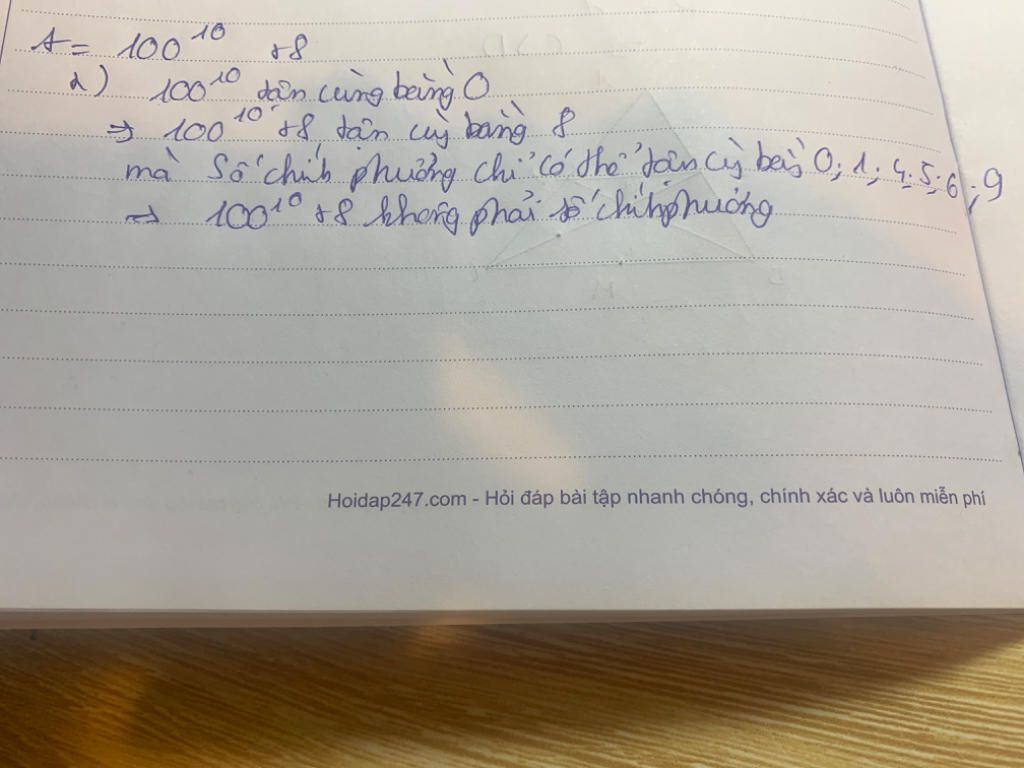 A = 100^10 +8
2) 100^10 tận cùng bằng 0
⇒ 100^10 +8 tận cùg bằng 8
mà Số chính phương chỉ có thể tận cùg bằg 0; 1; 4; 5; 6; 9
⇒ 100^10 +8 không phải số chính phương
Hoidap247.com - Hỏi đáp bài tập nhanh chóng, chính xác và luôn miễn phí